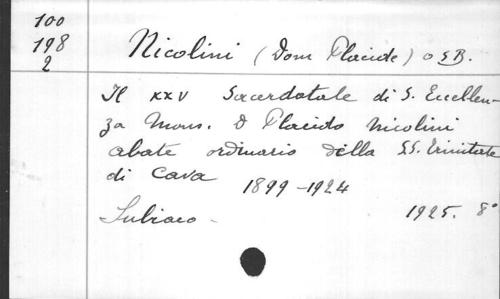 100
198
2
Nicolini (Dom Placide) O S B.
Il XXV Sacerdotale di S. Eccellen-
za Mons. D Placido Nicolini
abate ordinario della SS. Trinitate
di Cava
1899-1924
Subiaco -
1925. 8°